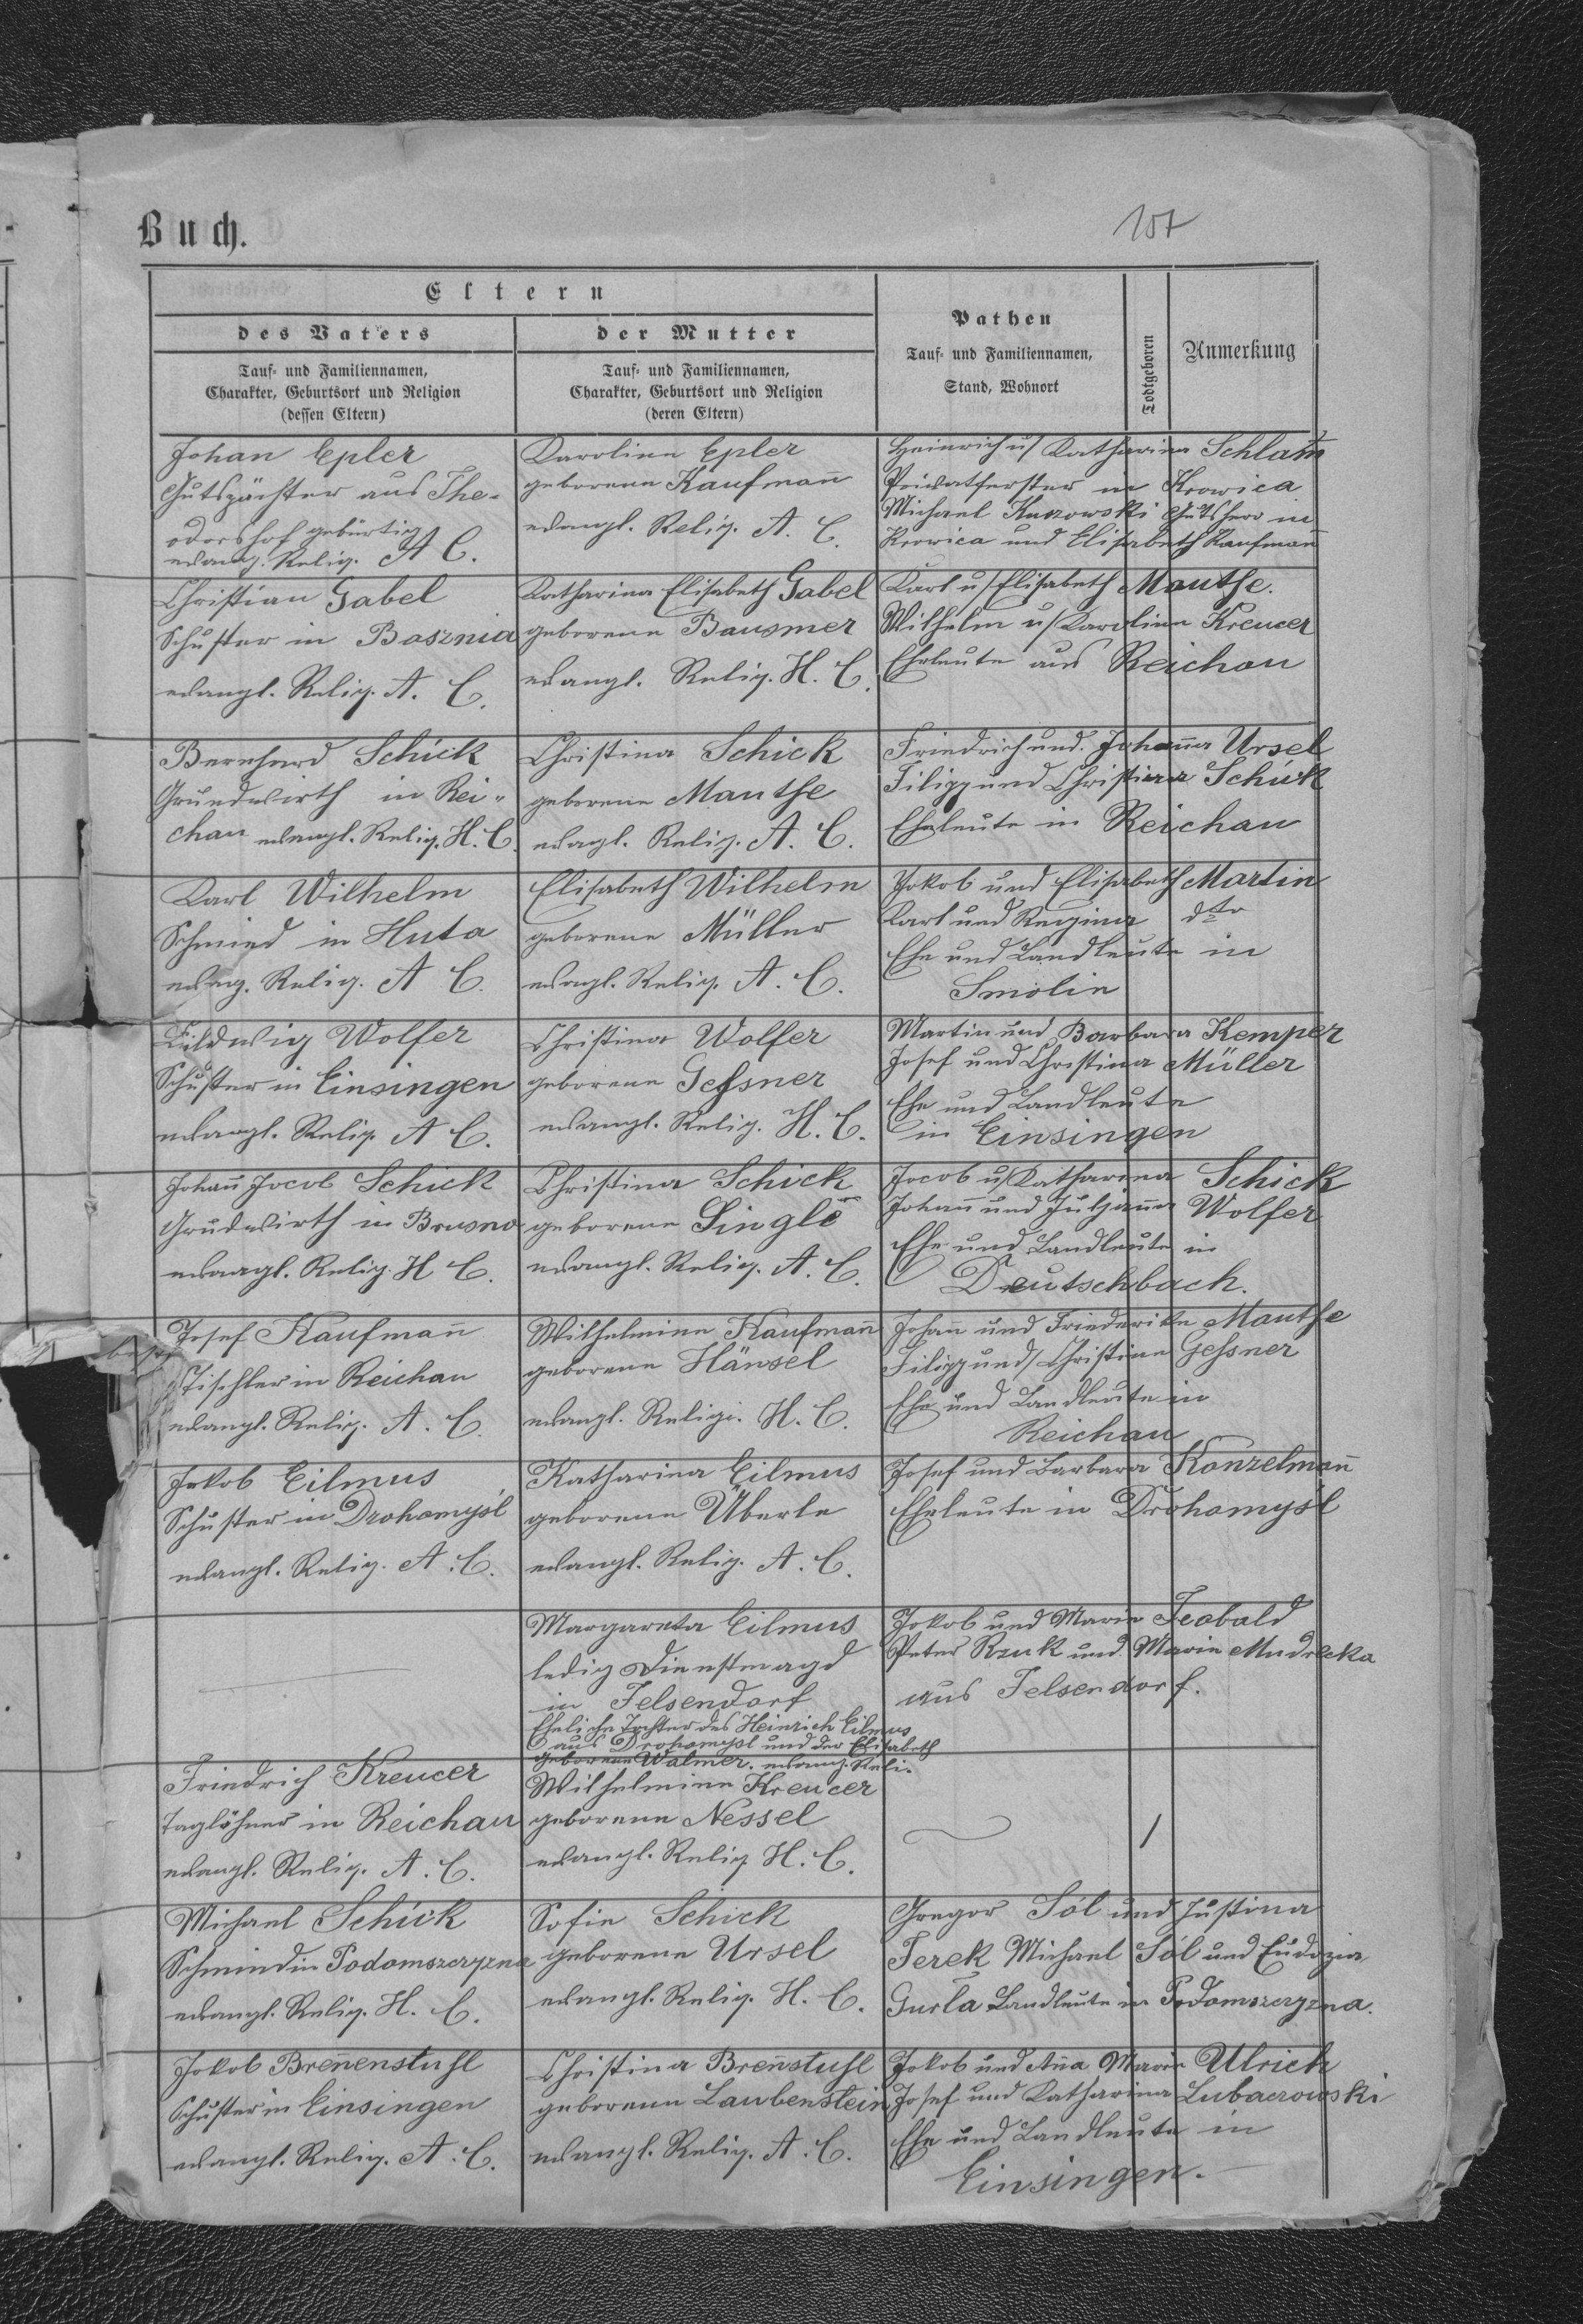 Buch.
107
Eltern
des Vaters
der Mutter
Pathen
Todtgeboren
Anmerkung
Tauf- und Familiennamen,
Charakter, Geburtsort und Religion
(dessen Eltern)
Tauf- und Familiennamen,
Charakter, Geburtsort und Religion
(deren Eltern)
Tauf- und Familiennamen,
Stand, Wohnort
Johan Epler
Gutspächter aus The-
odorshof gebürtig
evang. Relig. A C.
Karoline Epler
geborene Kaufmañ
evangl. Relig. A. C.
Heinrich u/ Katharina Schlam
Privatferster in Krowica
Michael Kukowski Gutsherr in
Krowica und Elisabeth Kaufmañ
Christian Gabel
Schuster in Basznia
evangl. Relig. A. C.
Katharina Elisabeth Gabel
geborene Bausmer
evangl. Relig. H. C.
Karl u/ Elisabeth Manthe.
Wilhelm u/ Karoline Kreucer
Eheleute aus Reichau
Bernhard Schick
Grundwirth in Rei-
chau evangl. Relig. H. C.
Christina Schick
geborene Manthe
evagl. Relig. A. C.
Friedrich und Johaña Ursel
Filipp und Christina Schick
Eheleute in Reichau
Karl Wilhelm
Schmied in Huta
evag. Relig. A C.
Elisabeth Wilhelm
geborene Müller
evagl. Relig. A. C.
Jakob und Elisabeth Martin
Karl und Regina dto
Ehe und Landleute in
Smolin
Ludwig Wolfer
Schuster in Einsingen
evangl. Relig. A C.
Christina Wolfer
geborene Geßner
evangl. Relig. H. C.
Martin und Barbara Kemper
Josef und Christina Müller
Ehe und Landleute
in Einsingen
Johañ Jacob Schick
Grudwirth in Brusno
evangl. Relig. H C.
Christina Schick
geborene Singlé
evangl. Relig. A. C.
Jacob u/ Katharina Schick
Johañ und Juljaña Wolfer
Ehe und Landleute in
Deutschbach.
Josef Kaufmañ
Tischler in Reichau
evangl. Relig. A. C.
Wilhelmine Kaufmañ
geborene Hänsel
evangl. Religi. H. C.
Johañ und Friederike Manthe
Filipp und/ Christine Geßner
Ehe und Landleute in
Reichau
Jakob Eilmus
Schuster in Drohomyśl
evangl. Relig. A. C.
Katharina Eilmus
geborene Überle
evangl. Relig. A. C.
Josef und Barbara Konzelmañ
Eheleute in Drohomyśl
Margareta Eilmus
ledig Dienstmagd
in Felsendorf
Eheliche Tochter des Heinrich Eilmus
aus Drohomysl und der Elisabeth
geborene Walmer. evang. Reli.
Jakob und Marie Teobald
Peter Rzuk und Marie Mudrcka
aus Felsendorf.
Friedrich Kreucer
Taglöhner in Reichau
evangl. Relig. A. C.
Wilhelmine Kreucer
geborene Nessel
evangl. Relig H. C.
/
Michael Schick
Schmied in Podomszczyzna
evangl. Relig. H. C.
Sofie Schick
geborene Ursel
evangl. Relig. H. C.
Gregor Sól und Justina
Ferek Michael Sól und Eudozia
Gurla Landleute in Podomszczyzna.
Jakob Breñenstuhl
Schuster in Einsingen
evangl. Relig. A. C.
Christina Breñstuhl
geborene Laubenstein
evangl. Relig. A. C.
Jakob und Aña Marie Ulrich
Josef und Katharina Lubacrowski
Ehe und Landleute in
Einsingen.